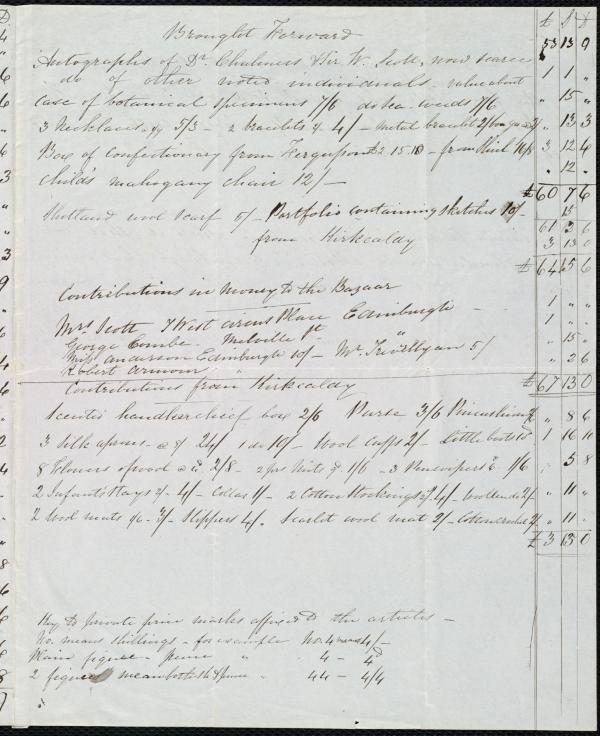 £ S D
Brought Forward 53 13 9
Autographs of Dr. Chalmers & Sir W. Scott, now scarce
do of other noted individuals - value about 1 1 "
Case of botanical specimens 7/6 do Sea-weeds 7/6 " 15 "
3 Necklaces @ 5/3 - 2 bracelets @ 4/- metal bracelet 2/ " 13 3
Box of confectionary from Ferguson £2.15.10 - from 16/8 3 12 6
Child's mahogany chair 12/- " 12 "
£60 7 6
Shetland wool scarf 5/- Portfolio containing sketches 10/- 15
61 2 6
from Kirkcaldy 3 13 0
£64 15 6
Contributions in Money to the Bazaar
Mrs Scott 7 West Circus Place Edinburgh - - 1 " "
George Combe Melville St. " 1 " "
Miss Anderson Edinburgh 10/- Mr. Trevellyan 5/ " 15 "
Robert Armour " " 2 6
£67 13 0
Contributions from Kirkcaldy
Scented handkerchief box 2/6 Purse 3/6 Pincushion 2/ " 8 6
3 Silk aprons @ 24/- 1 do 10/- Wool Cuffs 2/- Little boots 1 16 11
8 Flowers of wool @ 2/8 - 2 prs Mits @ 1/6 - 3 Penwipers @ 1/6 " 5 8
2 Infants Stays @ 4/- Collar 1/- 2 Cotton Stockings @ 4/- Woollen do 2/- " 11 "
2 Wool mats 3/- Slippers 4/- Scarlet wool mat 2/- Cotton 2/ " 11 "
£3 13 0
Key to private price marks affixed to the articles -
No. means shillings - for example No. 4 means 4/-
Plain figure - pence " 4 - 4d
2 figures mean both sh & pence " 44 - 4/4